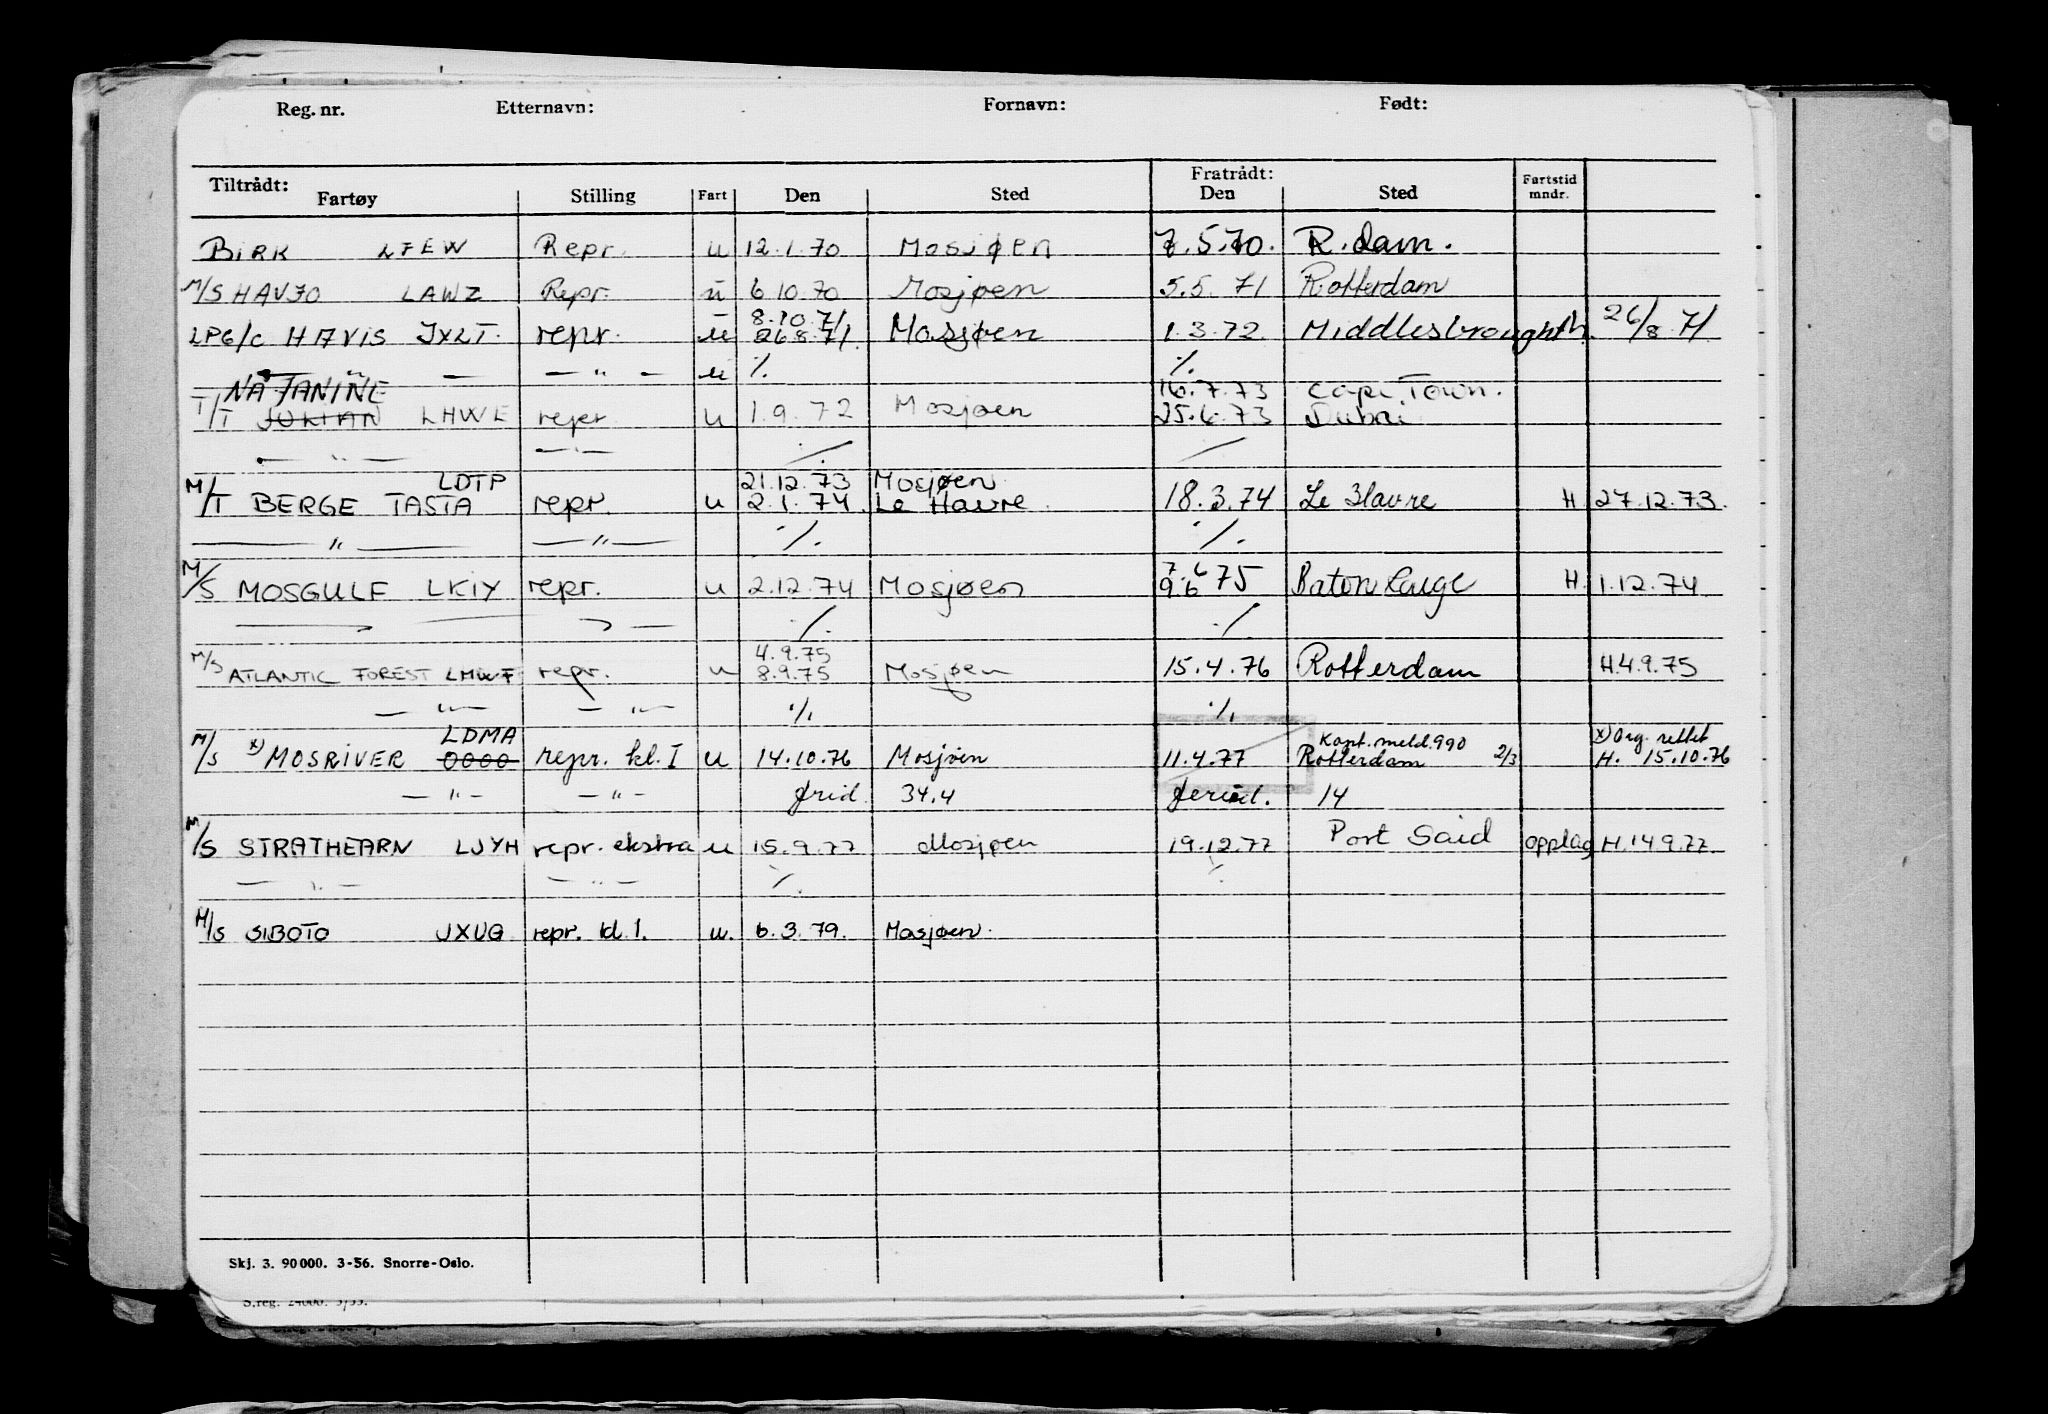 Reg. nr. Etternavn: Fornavn: Født:
Tiltrådt: Fratrådt: Fartstid
Fartøy Stilling Fart Den Sted Den Sted mndr.
BIRK LFEW Repr. u 12.1.70 Mosjøen 7.5.70. R.dam.
M/S HAVJO LAWZ Repr. u 6.10.70 Mosjøen 5.5.71 Rotterdam
8.10.71
LPG/C HAVIS JXLT. repr. u 26.8.71. Mosjøen 1.3.72. Middlesbrough 26/8 71
— — " — u ./. ./.
NA JANINE 16.7.73 Cape Town.
T/T JULIAN LHWE repr u 1.9.72 Mosjøen 25.6.73 Dubai
— " — — " — ./. /
LDTP 21.12.73 Mosjøen
M/T BERGE TASTA repr. u 2.1.74. Le Havre. 18.3.74 Le Havre H 27.12.73.
— " — — " — ./. ./.
7.6
M/S MOSGULF LKIY repr. u 2.12.74 Mosjøen 9.6 75 Baton Rouge H. 1.12.74
./. ./.
4.9.75
M/S ATLANTIC FOREST LMWF repr. u 8.9.75 Mosjøen 15.4.76 Rotterdam H.4.9.75
— " — — " — ./. ./.
LDMA Kont. meld. 990 x) Org. rettet
M/S x) MOSRIVER OOOO repr. kl. I u 14.10.76 Mosjøen 11.4.77 Rotterdam 2/3 H. 15.10.76
— " — — " — frid. 34.4 14
M/S STRATHEARN LJYH repr. ekstra u 15.9.77 Mosjøen 19.12.77 Port Said opplag H.14.9.77.
— " — — " — ./. ./.
M/S SIBOTO JXUG repr. kl. 1. u. 6.3.79. Mosjøen.
Skj. 3. 90 000. 3-56. Snorre-Oslo.
S.reg. 24000. 3/55.